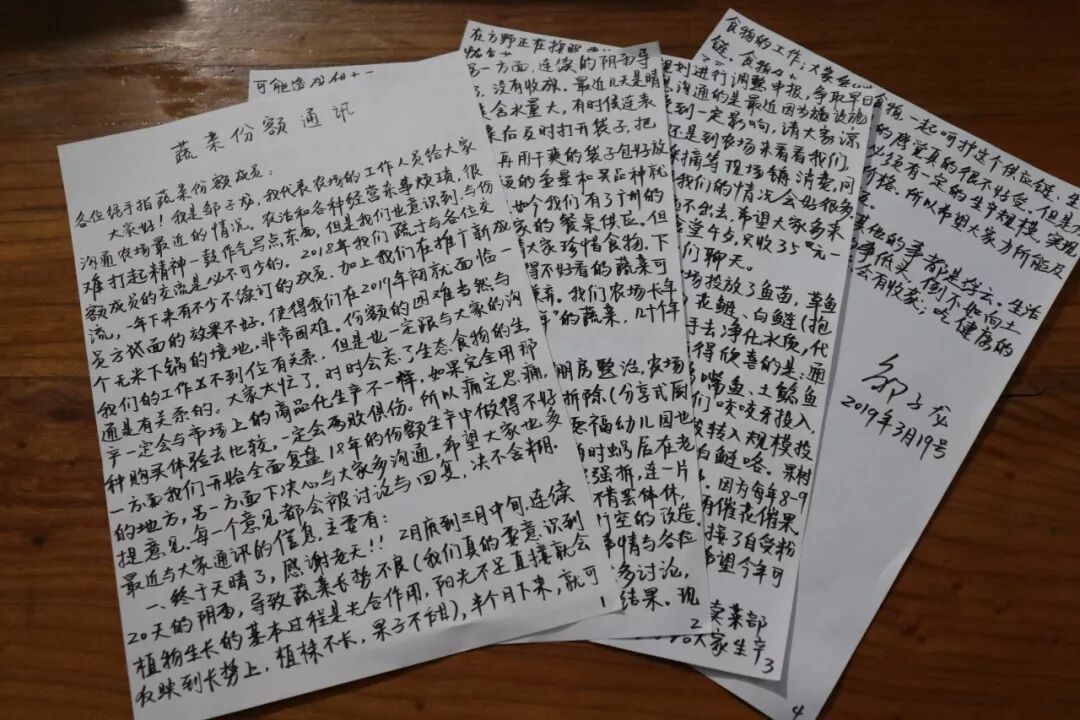 蔬菜份额通讯
各位绿手指蔬菜份额成员:
大家好!我是邹子龙,我代表农场的工作人员给大家
沟通农场最近的情况。农活和各种经营杂事烦琐,很
难打起精神一鼓作气写点东西,但是我们也意识到,与份
额成员的交流是必不可少的。2018年我们疏于与各位交
流,一年下来有不少不续订的成员,加上我们在推广新成
员方式面的效果不好,使得我们在2019年开初就面临一
个无米下锅的境地,非常困难。份额的困难当然与
我们的工作不到位有关系,但是也一定跟与大家的沟
通是有关系的。大家太忙了,时时会忘了生态食物的生
产一定会与市场上的商品化生产不一样,如果完全用那
种购买体验去比较,一定会两败俱伤。所以痛定思痛,
一方面我们开始全面复盘18年的份额生产中做得不好
的地方,另一方面下决心与大家多沟通,希望大家也多
提意见,每一个意见都会被讨论与回复,决不含糊。
最近与大家通讯的信息,主要有:
一、终于天晴了,感谢老天!!2月底到三月中旬,连续
20天的阴雨,导致蔬菜长势不良(我们真的要意识到
植物生长的基本过程是光合作用,阳光不足直接就会
反映到长势上,植株不长,果子不甜),半个月下来,就可
1
可能造成
另一方面,连续的阴雨导
,没有收成。最近几天是晴
菜含水量大,有时候连表
菜后及时打开袋子,把
再用干爽的袋子包好放
的重量和菜品种就
如今我们有了广州的
家的餐桌供应。但
请大家珍惜食物,下
得不好看的蔬菜可
弃。我们农场长年
年"的蔬菜,几十年
棚房整治,农场
拆除(分享式厨
幸福幼儿园也
时蜗居在老
强拆,连一片
情罢体休,
行空的改造
事情与各位
多讨论,
结果。现
2
在方野正在按照
划进行调整申报,争取早日
沟通的是最近因为施设施
受到一定影响。请大家谅
还是到农场来看看我们,
采摘等现场销消费,问
我们的情况会好很多
不出去,希望大家多来
堂午点,只收35元一
们聊天。
场投放了鱼苗,草鱼
花鲢、白鲢(抱
于去净化水质,代
得欣喜的是:通
嘴鱼、土鲶鱼
们咬咬牙投入
转入规模投
白鲢咯。果树
。因为每年8-9
有催花催果
接了自受粉
希望今年可
卖菜部
给大家生产
3
食物的工作;大家
链。食物
食物,一起呵护这个供应链、生
的感觉真的很不好受,但是
必须有一定的生产规模,实现
价格。所以希望大家力所能及
其他的事都是浮云。生活
事低头,倒不如向土
会有收获;吃健康的
邹子龙
2019年3月19号
4